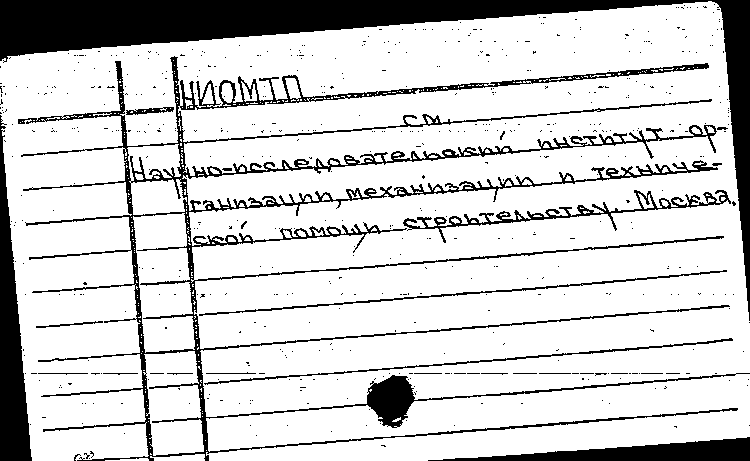 НИОМТП
см.
Научно-исследовательский институт ор-
ганизации, механизации и техниче-
ской помощи строительству. Москва.